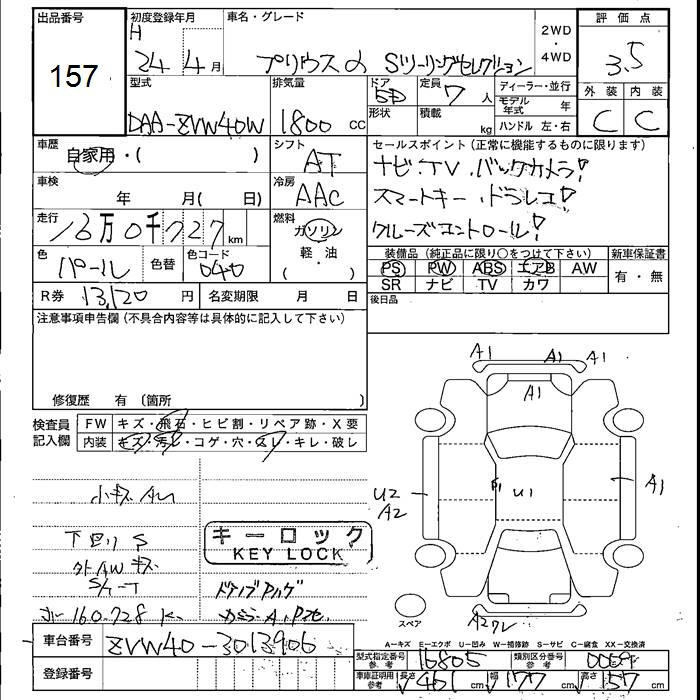 出品番号 157
初度登録年月 H 24年 4月
車名・グレード プリウスα Sツーリングセレクション
2WD ・ 4WD
評価点 3.5
外装 C 内装 C
型式 DAA-ZVW40W
排気量 1800 cc
ドア 5D 形状
定員 7人 積載 kg
ディーラー・並行
モデル年式 年
ハンドル 左・右
車歴 自家用・( )
シフト AT
車検 年 月( 日)
冷房 AAC
走行 16万0千727 km
燃料 ガソリン 軽油 ( ・ )
色 パール 色替 色コード 040
R券 13,120 円 名変期限 月 日
セールスポイント(正常に機能するものに限ります)
ナビ・TV・バックカメラ!
スマートキー・ドラレコ!
クルーズコントロール!
装備品(純正品に限り○をつけて下さい) 新車保証書
PS PW ABS エアB AW 有・無
SR ナビ TV カワ
後日品
注意事項申告欄(不具合内容等は具体的に記入して下さい)
修復歴 有 (箇所
検査員記入欄
FW キズ・飛石・ヒビ割・リペア跡・X要
内装 キズ・汚レ・コゲ・穴・スレ・キレ・破レ
小キズ
下回り S
外AWキズ
キーロック
KEY LOCK
A1 A1 A1
A1
U2
A2
U1
A1
スペア
A2
車台番号 ZVW40-3013906
登録番号
A-キズ E-エクボ U-凹み W-補修跡 S-サビ C-腐食 XX-交換済
型式指定番号 参考 16805 類別区分番号 参考 0069
車庫証明用 参考 長さ 461 cm 幅 177 cm 高さ 157 cm